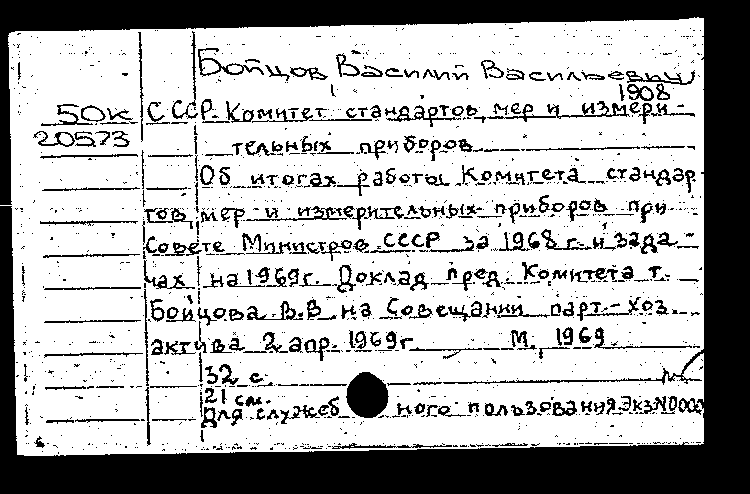 Бойцов Василий Васильевич
1908
50к СССР. Комитет стандартов, мер и измери-
20573 тельных приборов
Об итогах работы Комитета стандар-
тов, мер и измерительных приборов при
Совете Министров СССР за 1968 г. и зада-
чах на 1969г. Доклад пред. Комитета т.
Бойцова В.В на Совещании парт.-хоз.
актива 2 апр. 1969г. М., 1969
32 с.
21 см.
Для служебного пользования. Экз N0000